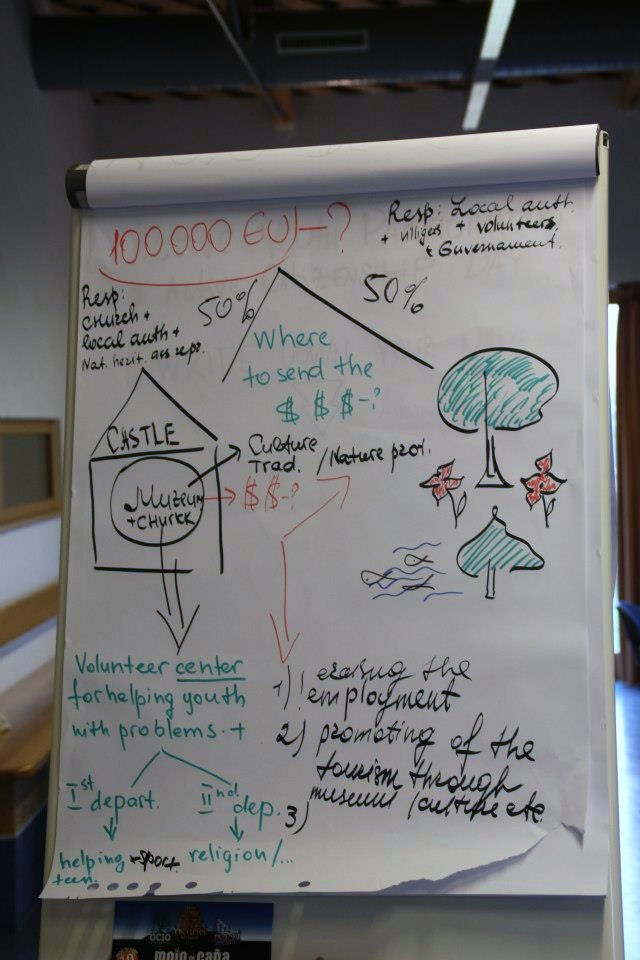 100.000 EU) - ?
Resp: Local auth.
+ villigers + volunteers
+ Guvernament.
Resp:
CHURCH +
local auth +
Nat. herit. ass repr.
50%
50%
Where
to send the
$ $ $ - ?
CASTLE
Muzeum
+ CHURCK
Culture
Trad.
/ Nature prot.
$ $ - ?
Volunteer center
for helping youth
with problems. +
I st depart.
II nd dep.
helping + sport
teen.
religion /...
1) ! erasing the
employment
2) promoting of the
tourism through
museum / culture etc
3)
OCIO
mojo de caña